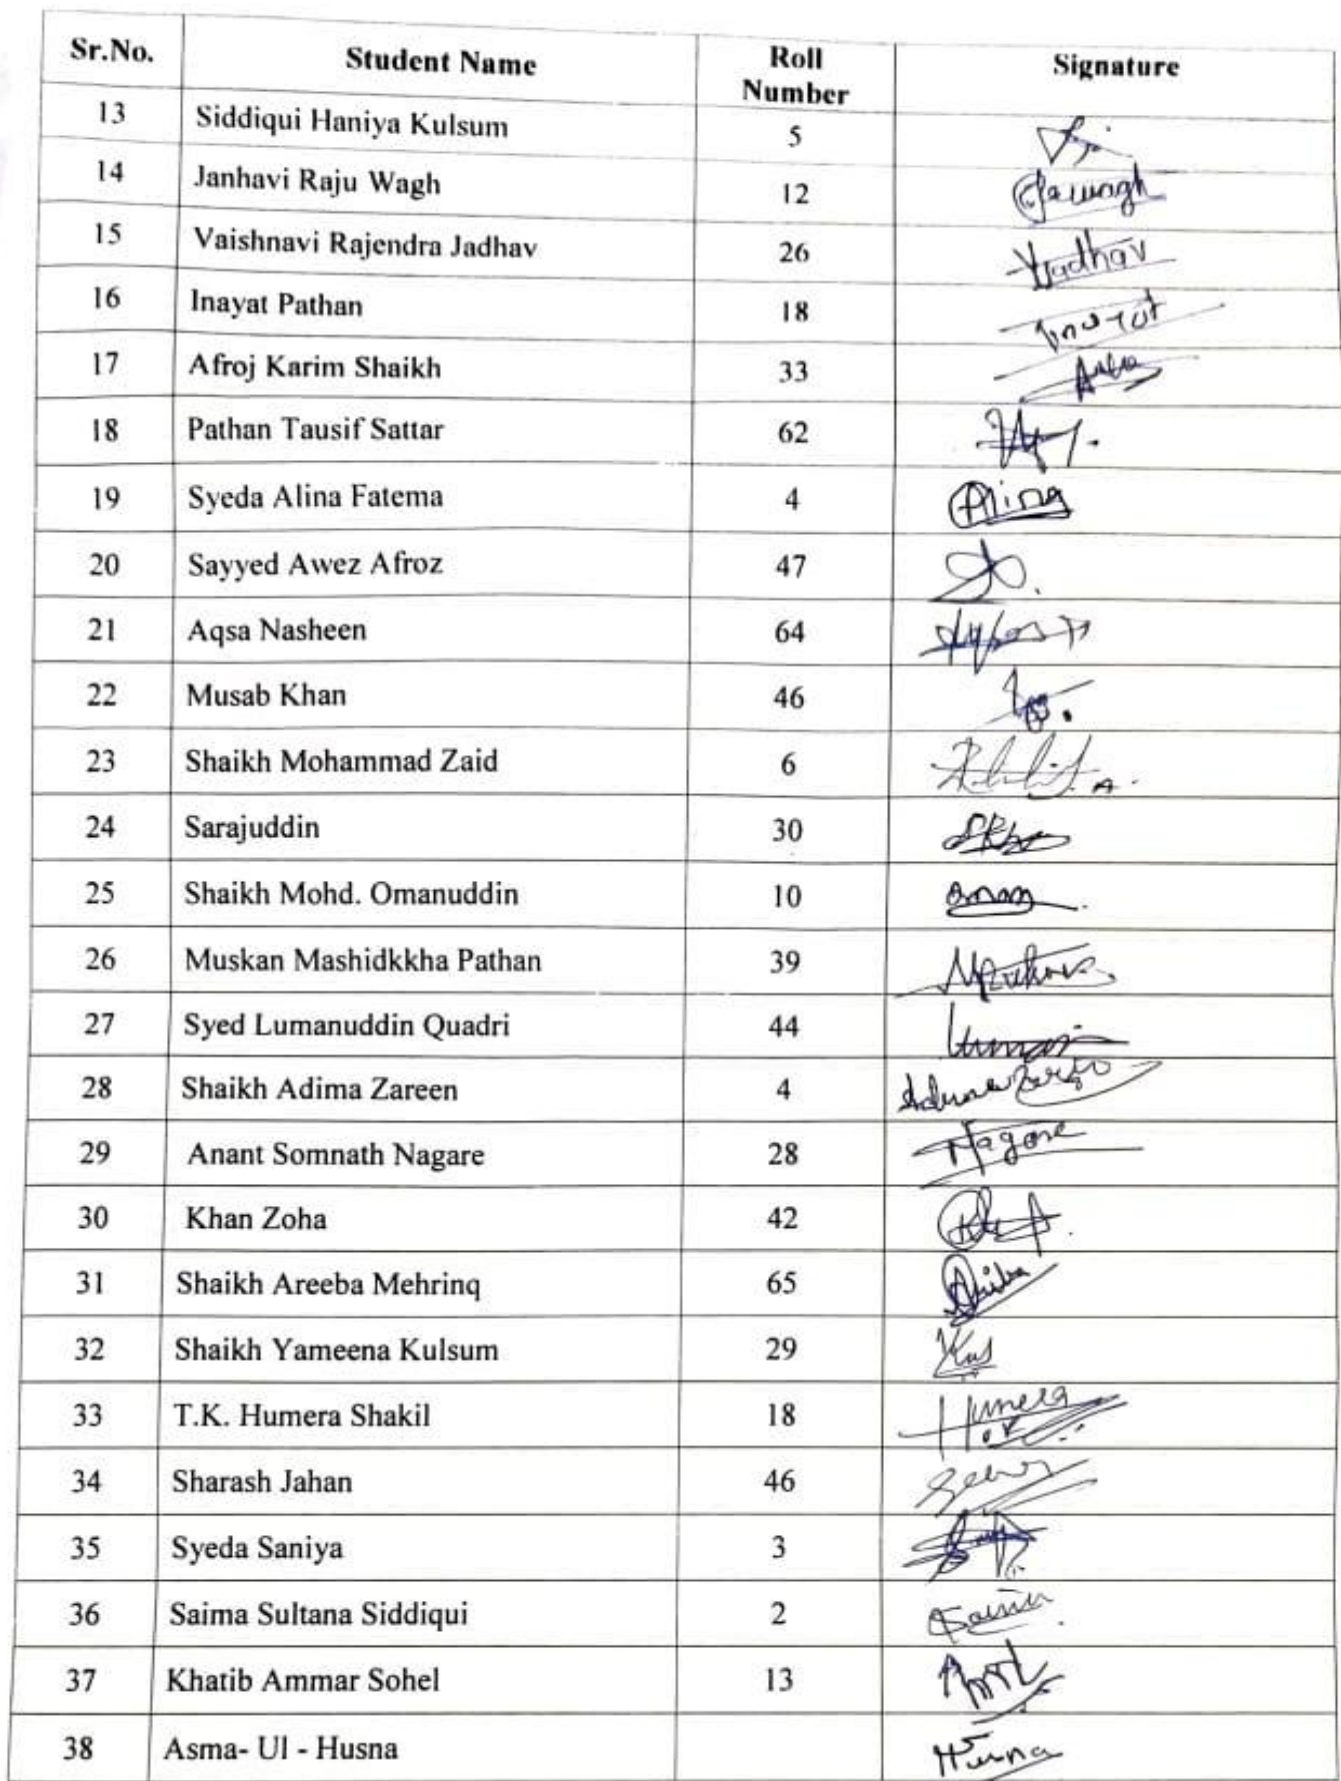 Sr.No. Student Name Roll Number Signature
13 Siddiqui Haniya Kulsum 5
14 Janhavi Raju Wagh 12
15 Vaishnavi Rajendra Jadhav 26 Jadhav
16 Inayat Pathan 18 Inayat
17 Afroj Karim Shaikh 33
18 Pathan Tausif Sattar 62
19 Syeda Alina Fatema 4 Alina
20 Sayyed Awez Afroz 47
21 Aqsa Nasheen 64
22 Musab Khan 46
23 Shaikh Mohammad Zaid 6
24 Sarajuddin 30
25 Shaikh Mohd. Omanuddin 10
26 Muskan Mashidkkha Pathan 39
27 Syed Lumanuddin Quadri 44
28 Shaikh Adima Zareen 4
29 Anant Somnath Nagare 28 Nagare
30 Khan Zoha 42
31 Shaikh Areeba Mehrinq 65
32 Shaikh Yameena Kulsum 29
33 T.K. Humera Shakil 18 Humera
34 Sharash Jahan 46
35 Syeda Saniya 3
36 Saima Sultana Siddiqui 2
37 Khatib Ammar Sohel 13
38 Asma- Ul - Husna Husna